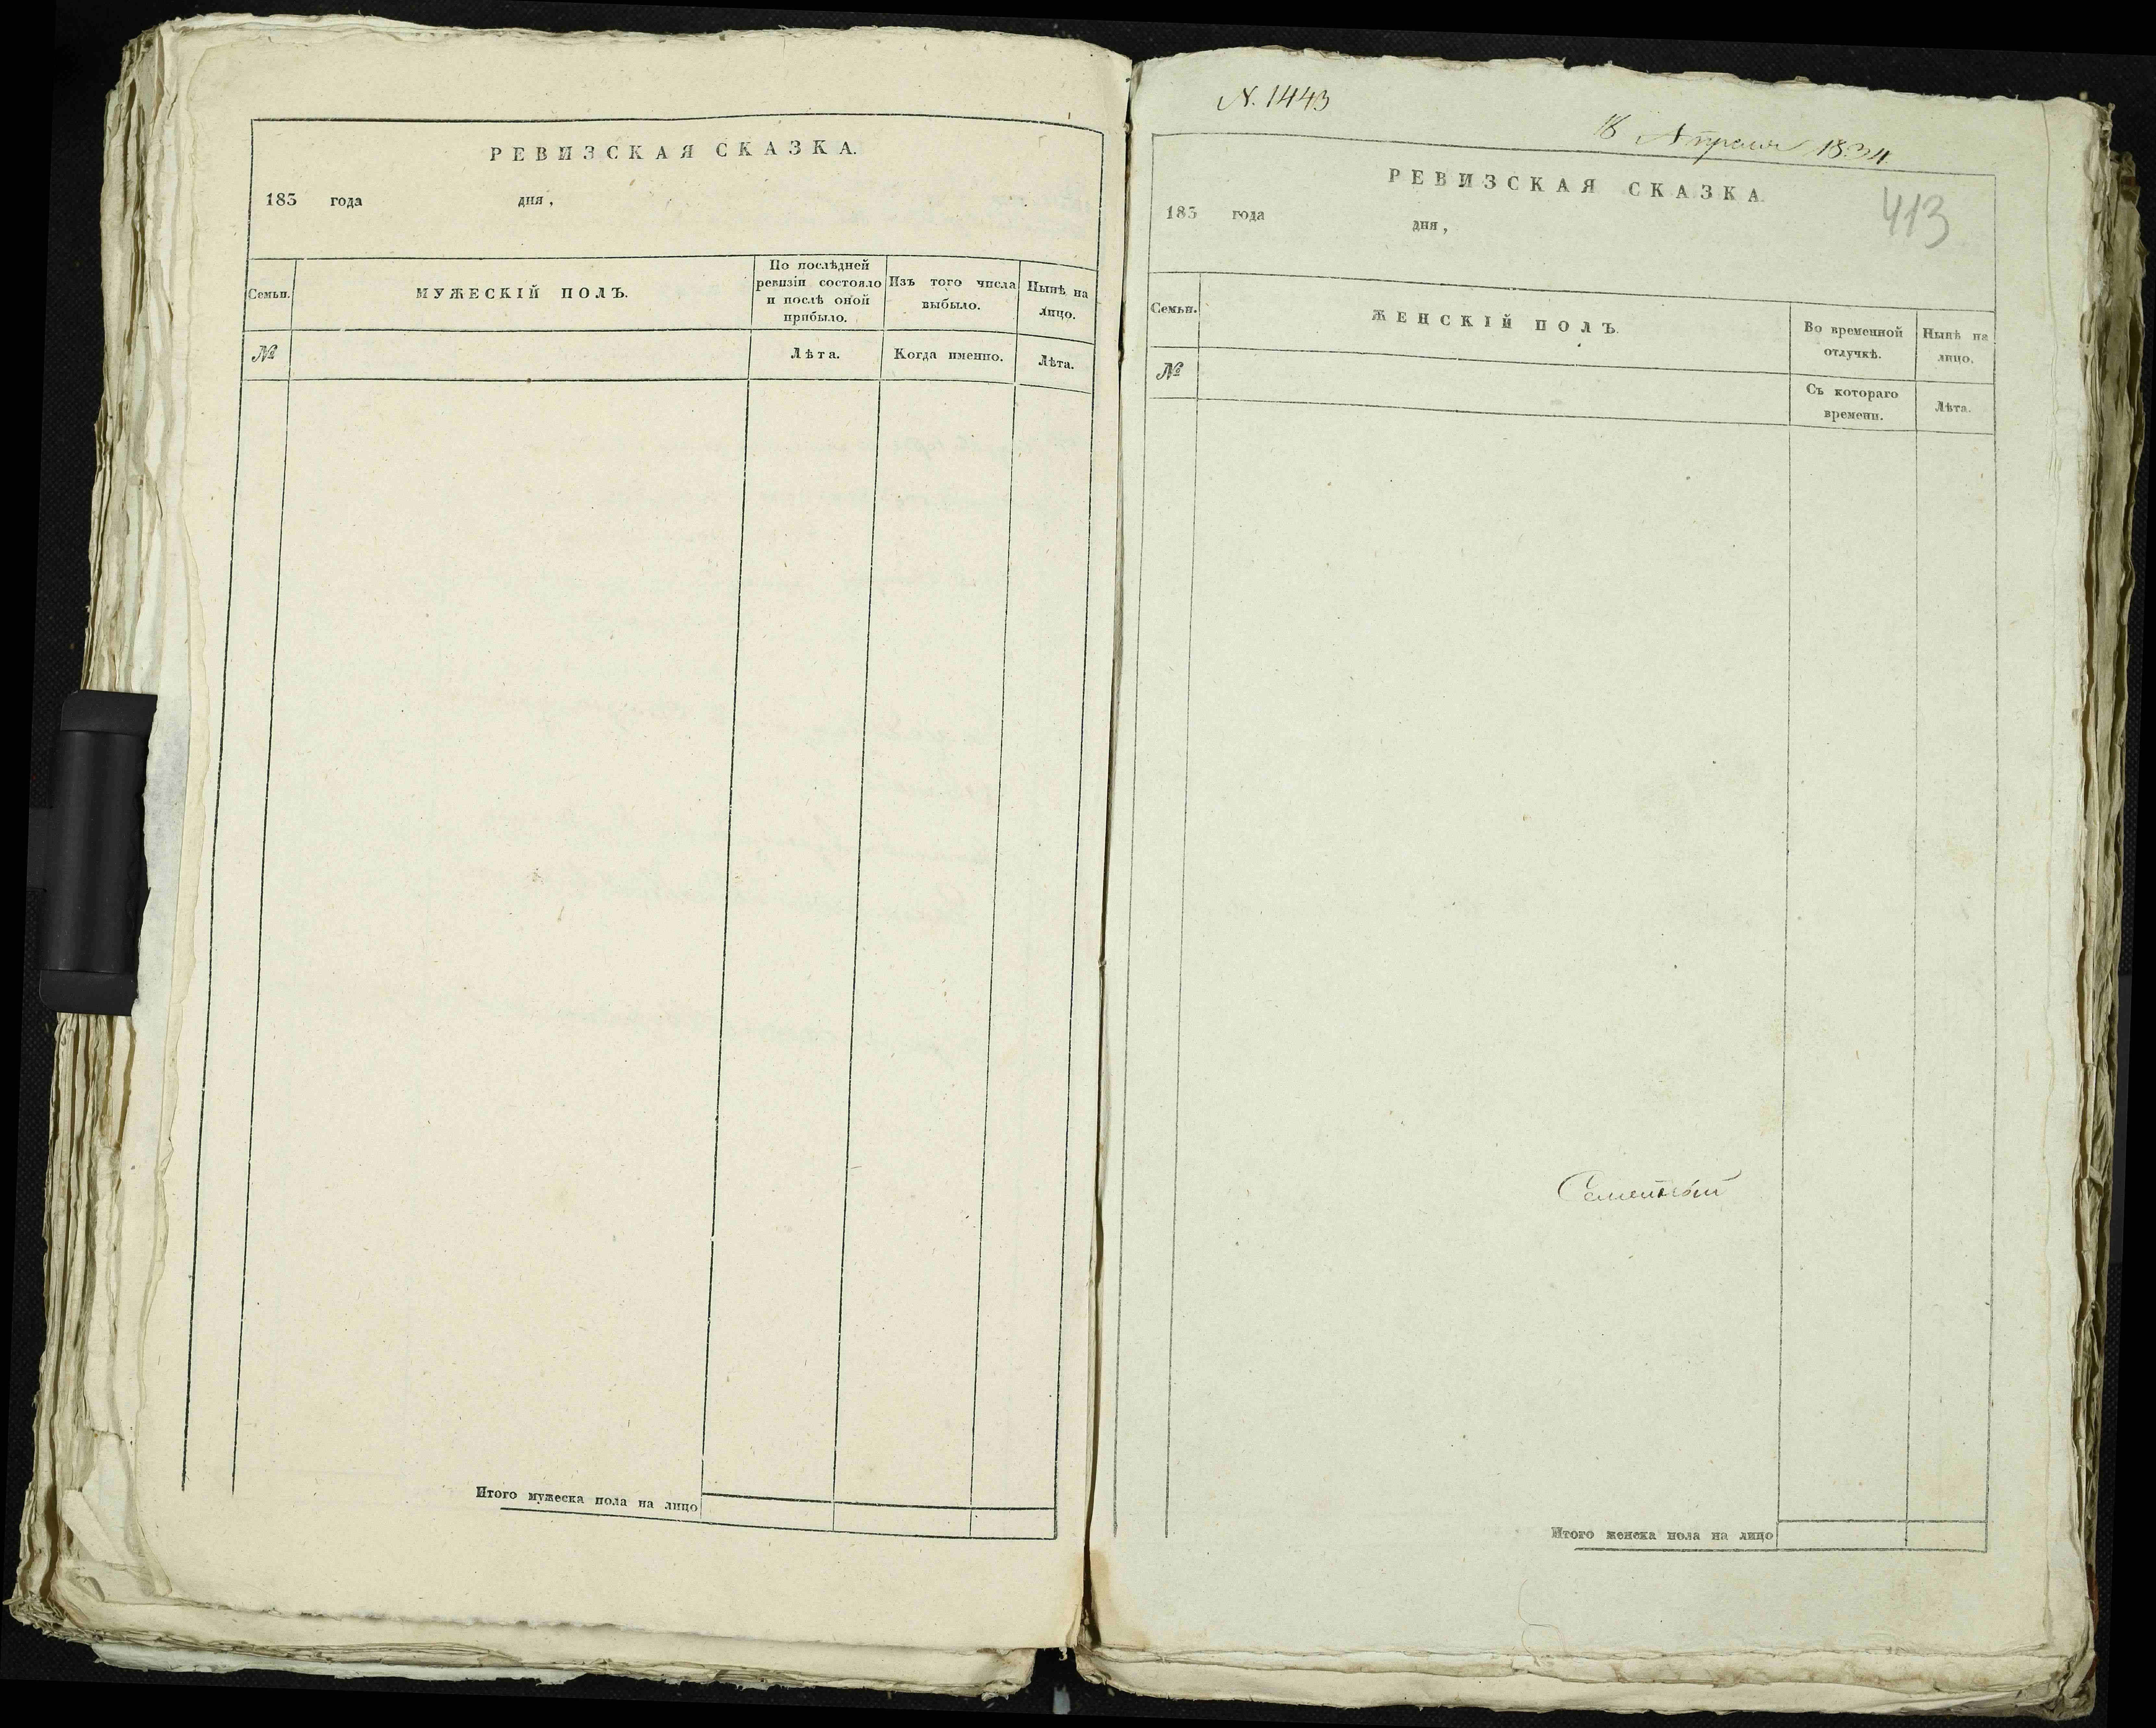 РЕВИЗСКАЯ СКАЗКА.
183 года дня,
Семьи.
МУЖЕСКІЙ ПОЛЪ.
По послѣдней ревизіи состояло и послѣ оной прибыло.
Изъ того числа выбыло.
Нынѣ на лицо.
№
Лѣта.
Когда именно.
Лѣта.
Итого мужеска пола на лицо
N. 1443
18 Апреля 1834
РЕВИЗСКАЯ СКАЗКА
413
183 года дня,
Семьи.
ЖЕНСКІЙ ПОЛЪ.
Во временной отлучкѣ.
Нынѣ на лицо.
№
Съ котораго времени.
Лѣта.
Итого женска пола на лицо